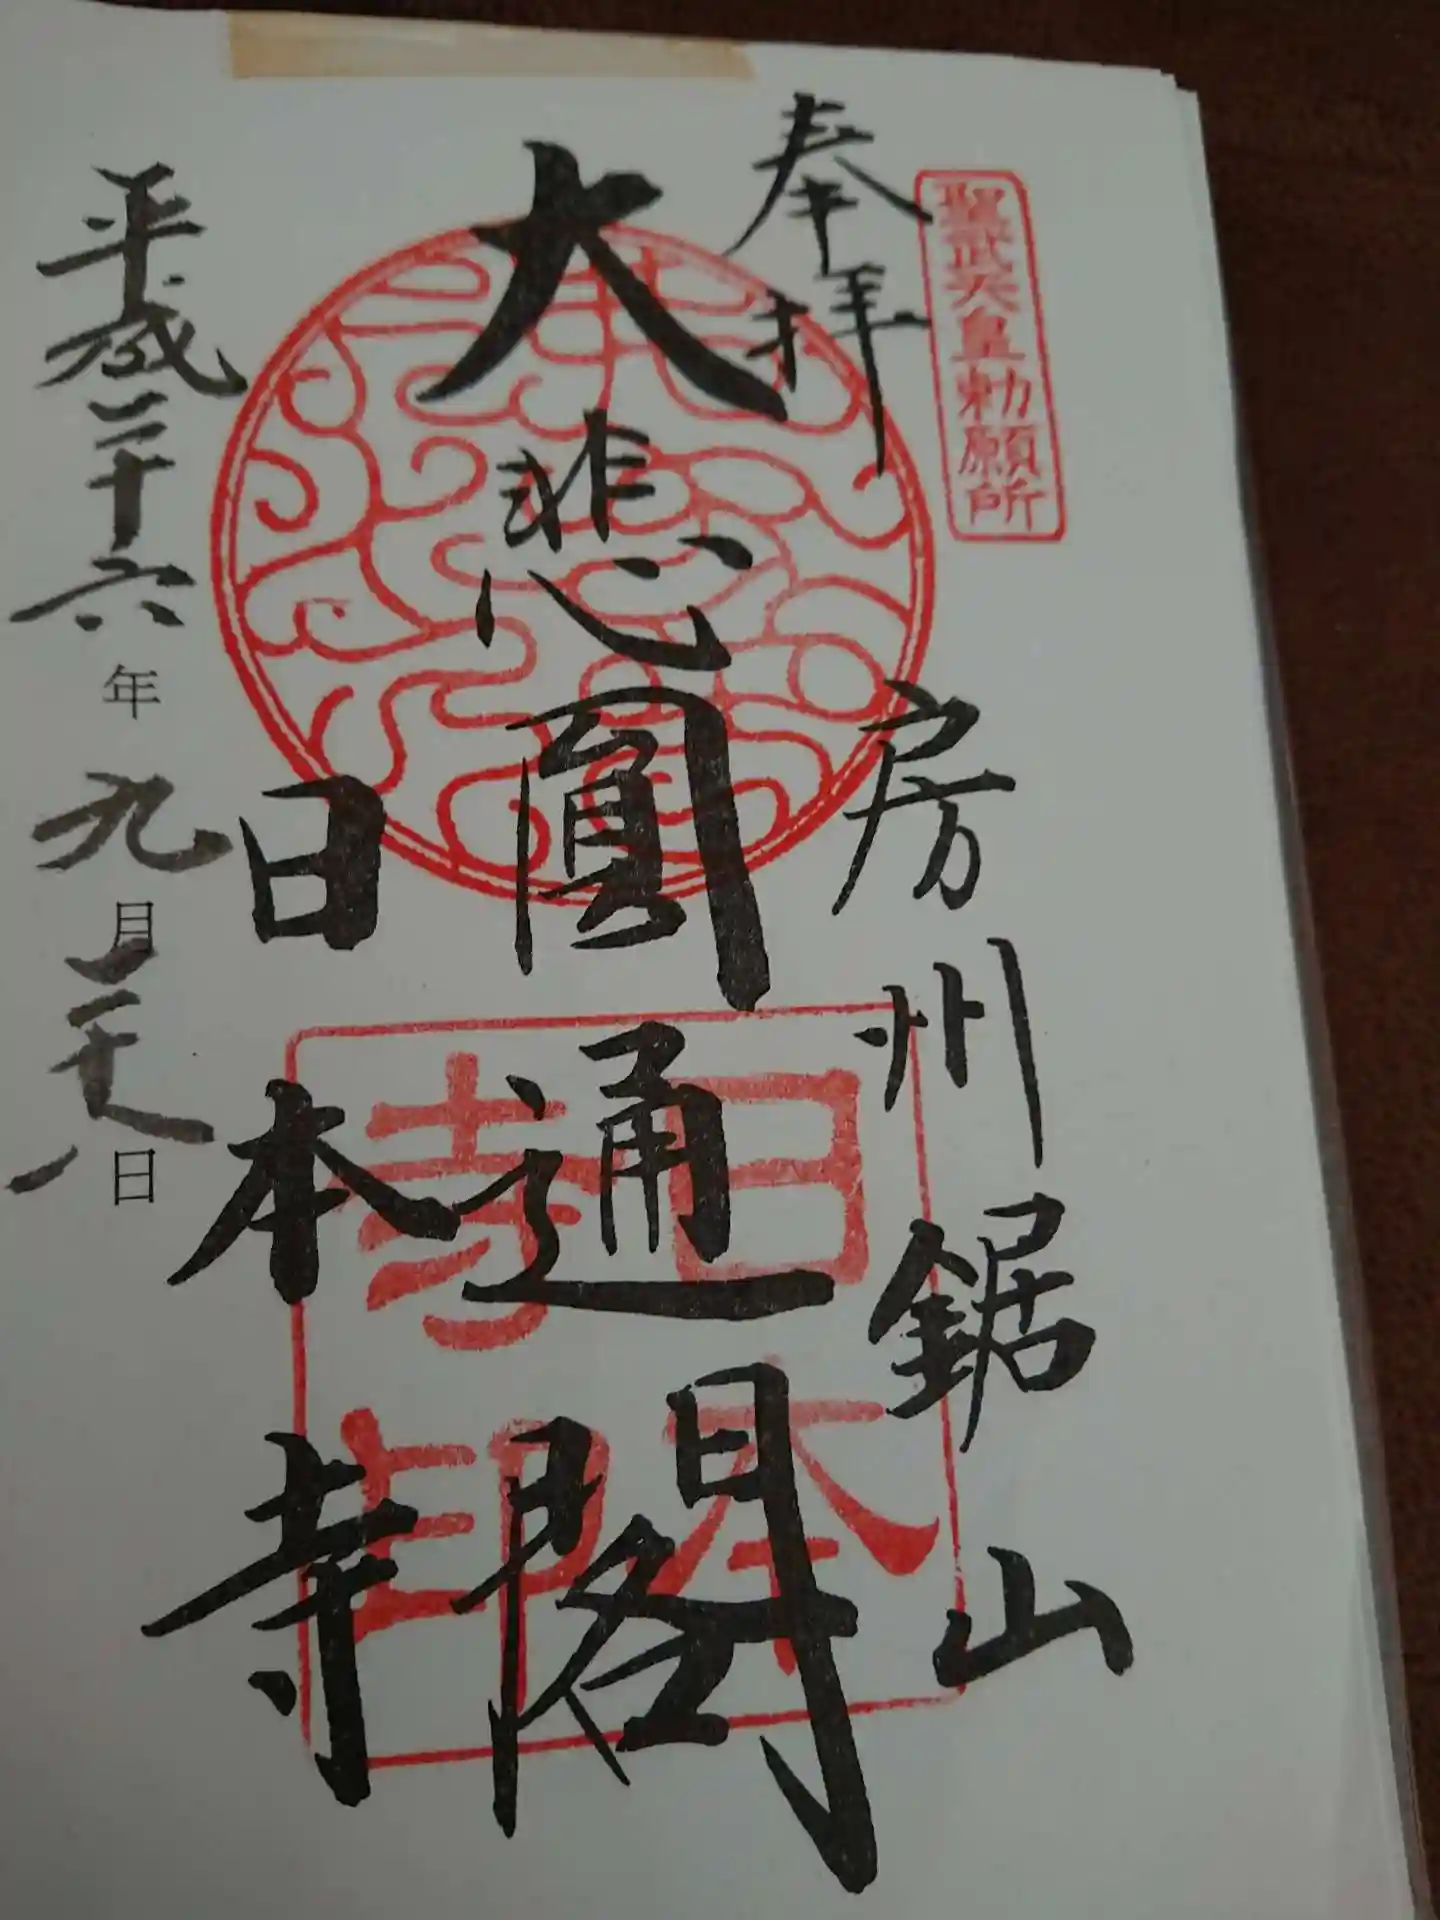 聖武天皇勅願所
奉拝
房州鋸山
大悲圓通閣
日本寺
日本
寺印
平成二十六年九月二十八日